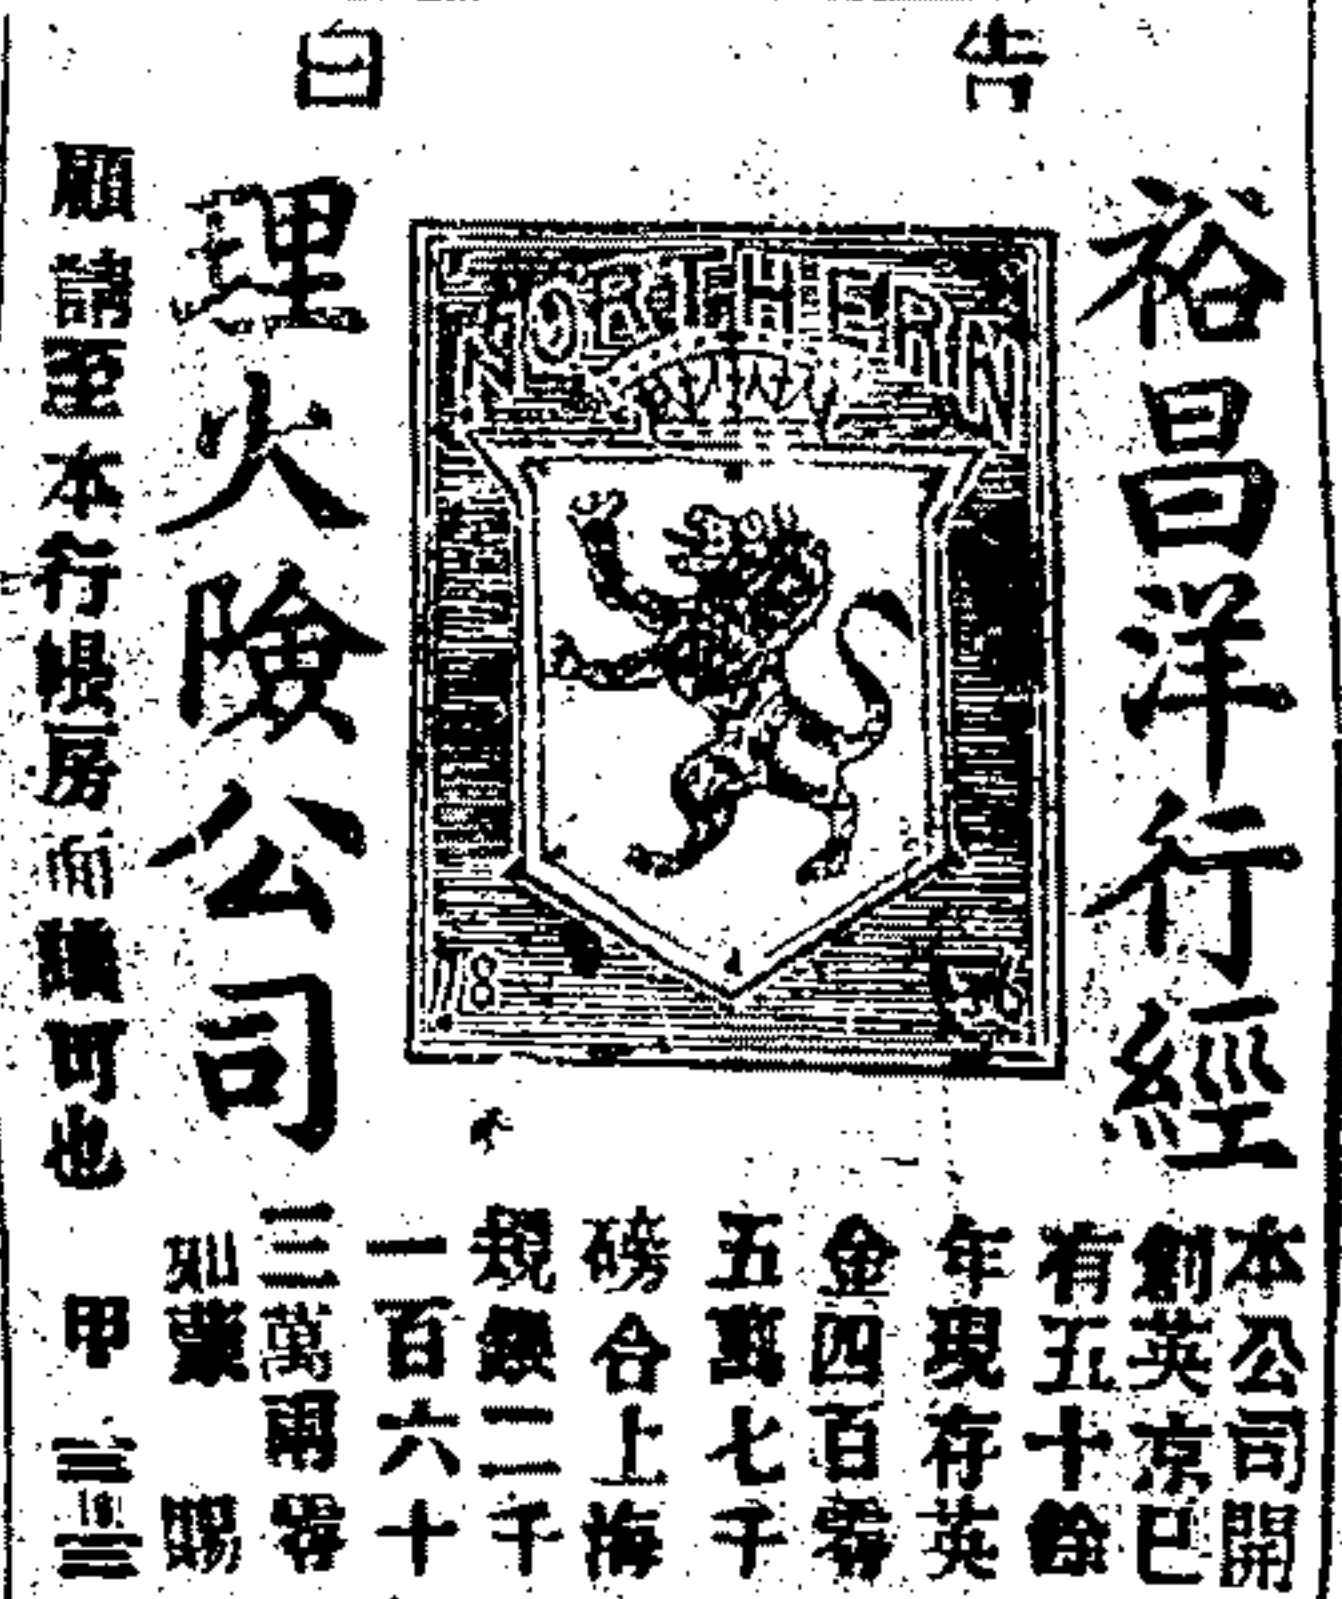 告白
裕昌洋行經
NORTHERN
1836
理火險公司
本公司開
創英京已
有五十餘
年現存英
金四百零
五萬七千
磅合上海
規銀二千
一百六十
三萬兩零
如蒙 賜
顧請至本行帳房面議可也
甲 三
三